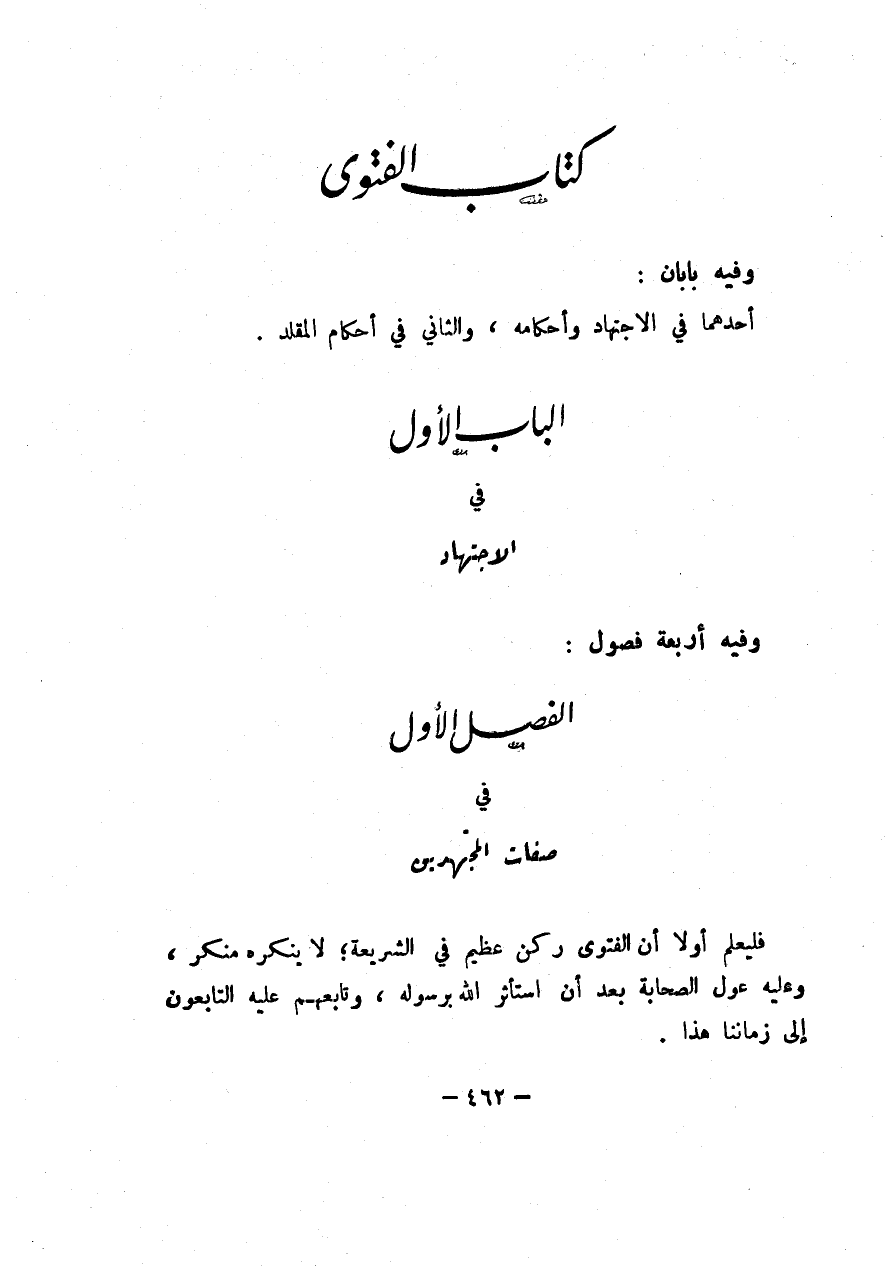 كتاب الفتوى
وفيه بابان :
أحدهما في الاجتهاد وأحكامه ، والثاني في أحكام المقلد .
الباب الأول
في
الاجتهاد
وفيه أربعة فصول :
الفصل الأول
في
صفات المجتهدين
فليعلم أولا أن الفتوى ركن عظيم في الشريعة؛ لا ينكره منكر ،
وعليه عول الصحابة بعد أن استأثر الله برسوله ، وتابعهم عليه التابعون
إلى زماننا هذا .
— ٤٦٢ —